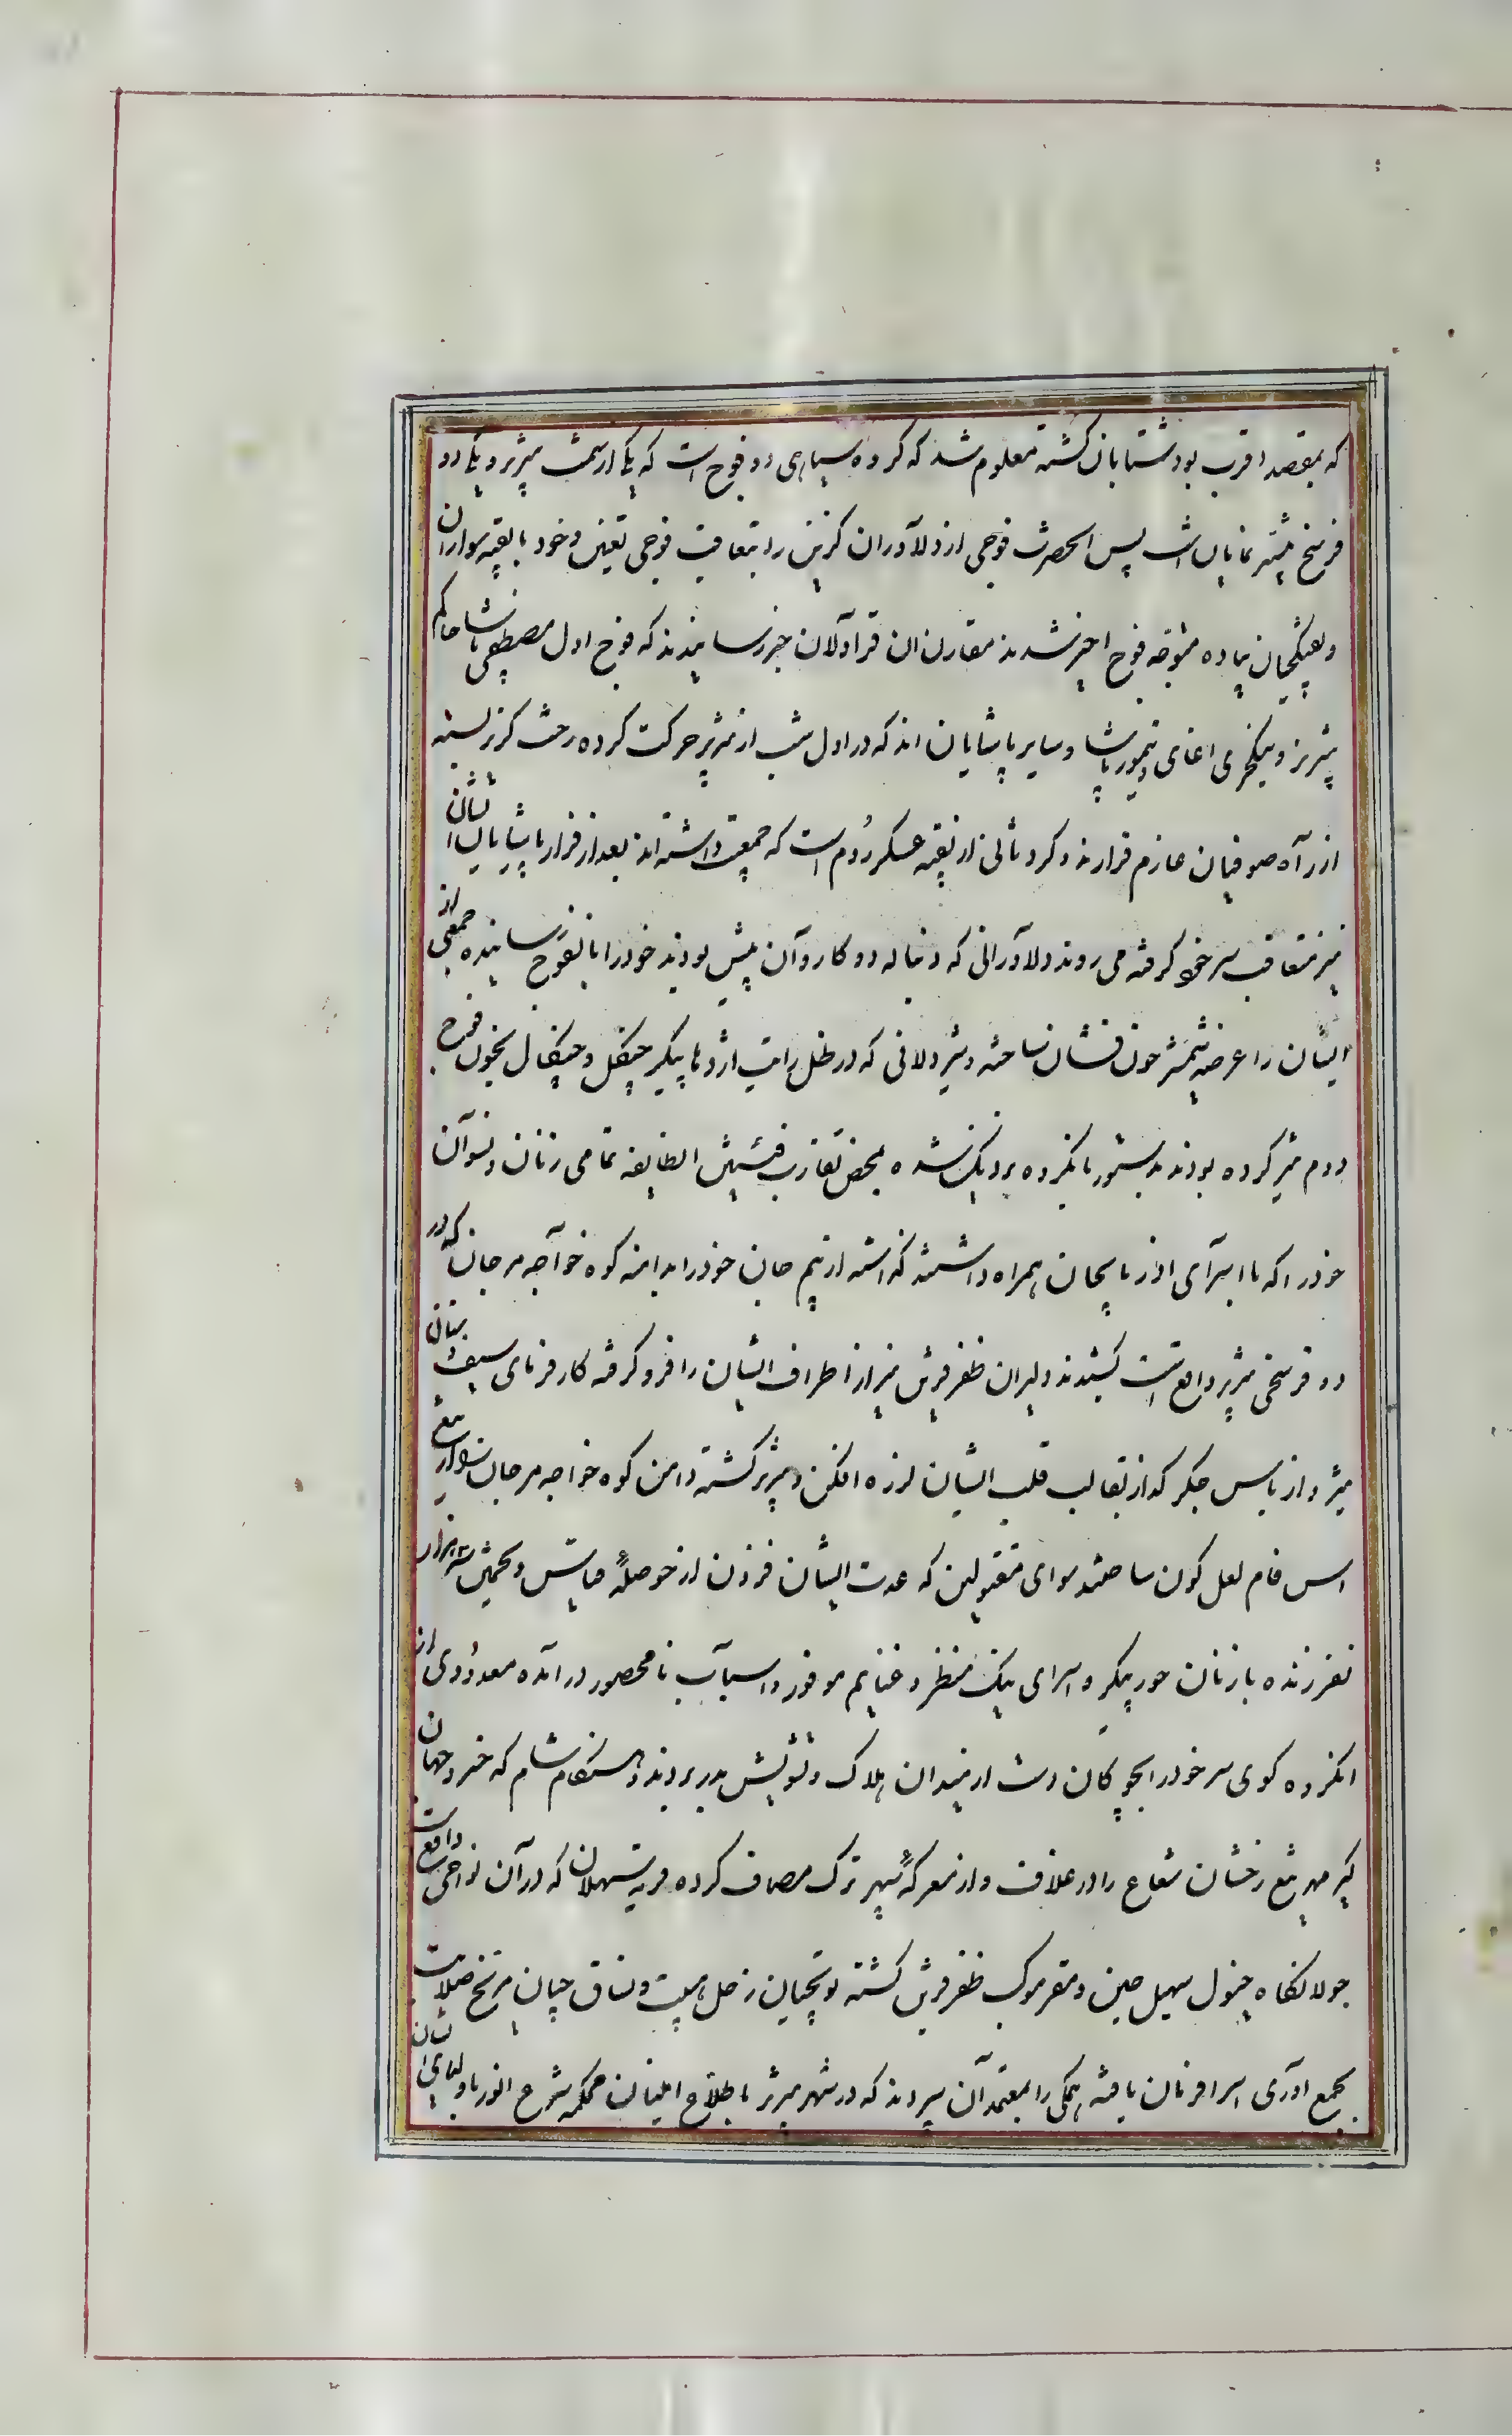 که بمقصد اقرب بود شتابان کشته معلوم شد که کرده سیاهی دو فوج است که یکی از سمت تبریز و یکی دو
فرسخ پیشتر نمایان است پس انحضرت فوجی از دلاوران کزین را بتعاقب فوجی تعین و خود با بقیه سواران
و تفنکچیان پیاده متوجه فوج اخیر شدند مقارن ان قراولان خبر رسانیدند که فوج اول مصطفی پاشا حاکم
تبریز و ینکچری اغاسی و تیمور پاشا و سایر پاشایان اند که در اول شب از تبریز حرکت کرده رخت کریز بسته
از راه صوفیان عازم فرارند و کروه ثانی از بقیه عسکر روم است که جمعیت داشته اند بعد از فرار پاشایان ایشان
نیز متعاقب سر خود کرفته می روند دلاورانی که دنباله دو کاروان پیش بودند خود را بانفوج رسانیده جمعی از
ایشان را عرضه شمشیر خون فشان ساخته و شیردلانی که در ظل رایت اژدها پیکر جنکل و جنکال بخون فوج
دوم تیز کرده بودند بدستور بانکروه نزدیک شده بمحض تقارب فئتین انطایفه تمامی زنان و نسوان
خود را که با اسرای اذربایجان همراه داشتند کذاشته از بیم جان خود را بدامنه کوه خواجه مرجان که در
دو فرسخی تبریز واقع است کشیدند دلیران ظفر قرین نیز از اطراف ایشان را فرو کرفته کارفرمای سیف و سنان
میز و از باس جکر کداز بقالب قلب ایشان لرزه افکن و تبریز کشته دامن کوه خواجه مرجان را از تیغ
الماس فام لعل کون ساختند سوای مقتولین که عدت ایشان فزون از حوصلهٔ قیاس و تخمین سه هزار
نفر زنده با زنان حور پیکر و اسرای نیک منظر و غنایم موفور و اسباب نامحصور در امده معدودی از
انکروه کوی سر خود را بچوکان دست از میدان هلاک و تشویش بدر بردند و هنکام شام که خسرو جهان
کیر مهر تیغ رخشان شعاع را در غلاف و از معرکهٔ سپهر ترک مصاف کرده قریه سهلان که در آن نواحی واقع است
جولانکاه خیول سهیل جبین و مقر موکب ظفر قرین کشته توپچیان زحل هیبت و نساق چیان مریخ صلابت
بجمع اوری اسرا فرمان یافته همکی را بمعتمدان سپردند که در شهر تبریز باطلاع امینان محکمه شرع انور باولیای ایشان